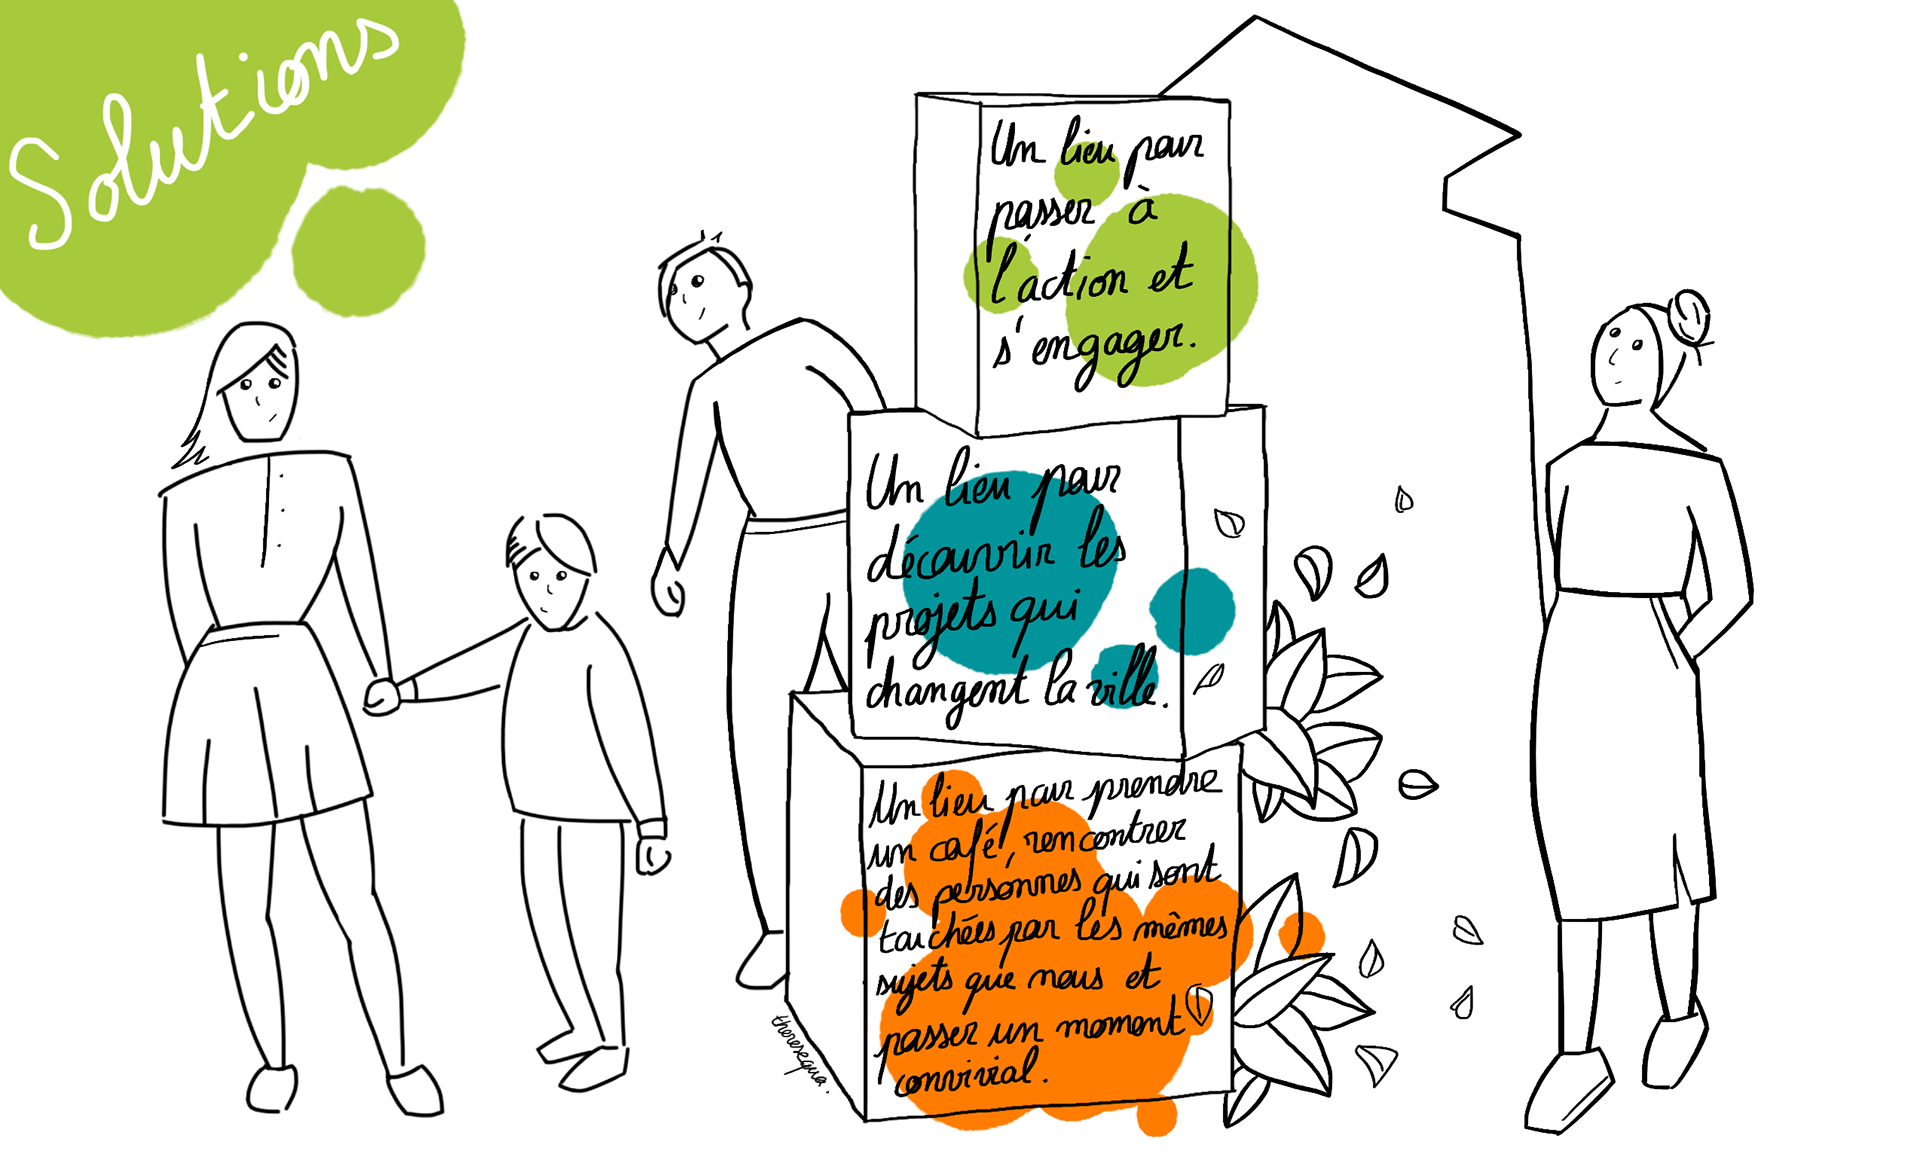 Solutions
Un lieu pour
passer à
l'action et
s'engager.
Un lieu pour
découvrir les
projets qui
changent la ville.
Un lieu pour prendre
un café, rencontrer
des personnes qui sont
touchées par les mêmes
sujets que nous et
passer un moment
convivial.
theresequa.